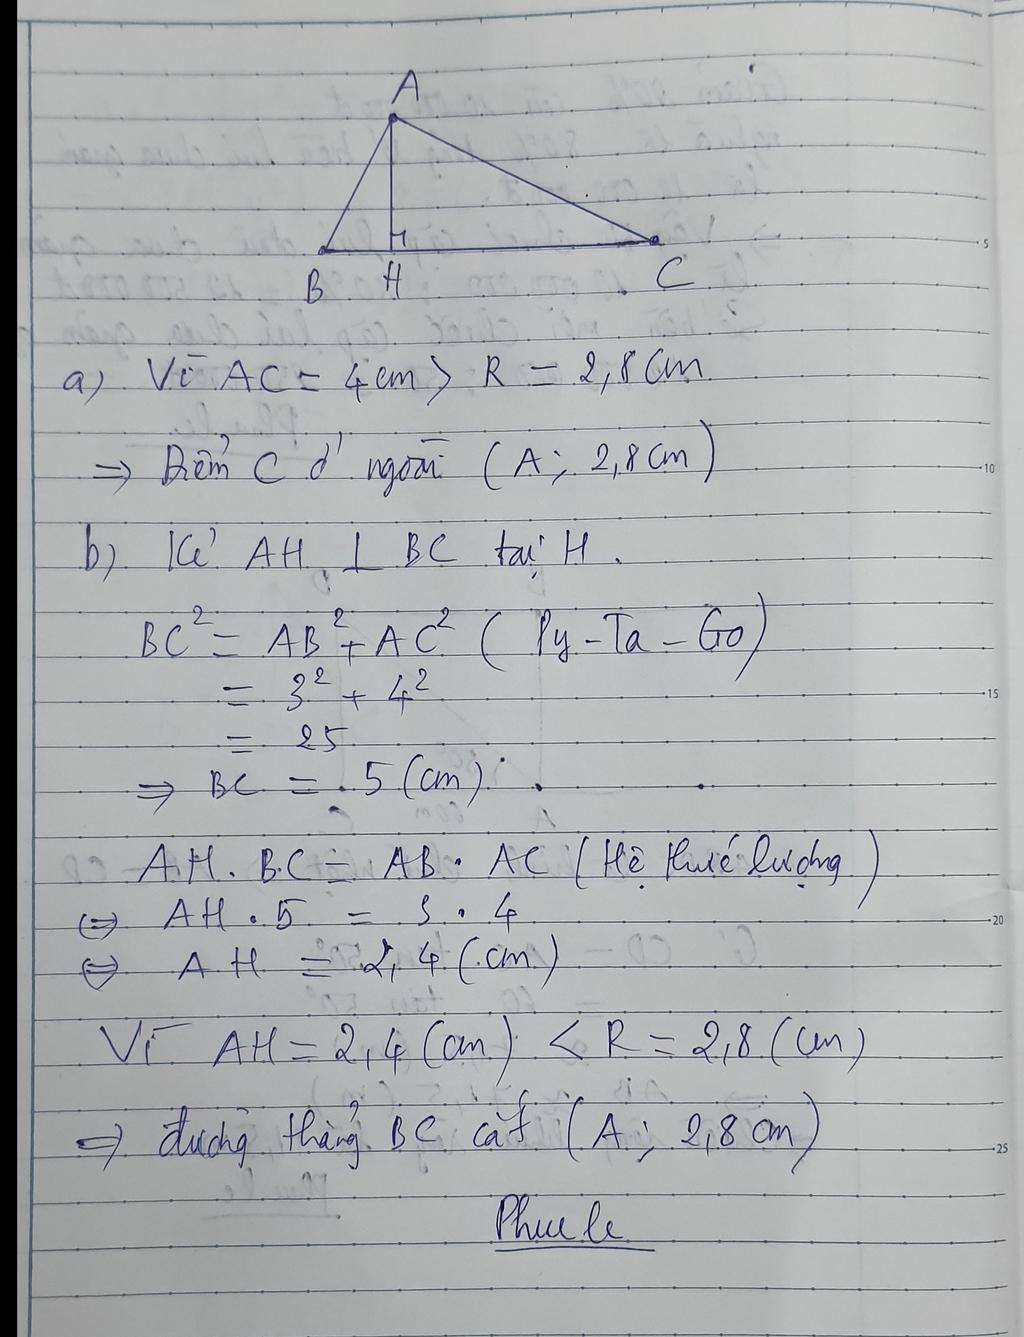 A
B H C
a) Vì AC = 4cm > R = 2,8cm
=> Điểm C ở ngoài (A; 2,8cm)
b) Kẻ AH ⊥ BC tại H.
BC² = AB² + AC² (Py-Ta-Go)
= 3² + 4²
= 25
=> BC = 5 (cm)
AH . BC = AB . AC (Hệ thức lượng)
<=> AH . 5 = 3 . 4
<=> AH = 2,4 (cm)
Vì AH = 2,4 (cm) < R = 2,8 (cm)
=> đường thẳng BC cắt (A; 2,8cm)
Phucle
5
10
15
20
25